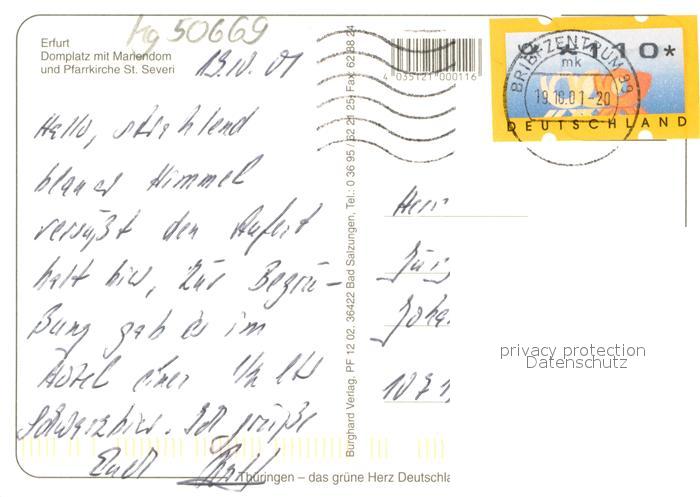 Erfurt
Domplatz mit Mariendom
und Pfarrkirche St. Severi
kg 50669
19.10.01
Hallo, strahlend
blauer Himmel
versüßt den Aufent
halt hier, zur Begrü-
ßung gab es im
Hotel einen 1/2 Ltr
Schwarzbier. Ich grüße
Euch
Thüringen – das grüne Herz Deutschla
Burghard Verlag, PF 12 02, 36422 Bad Salzungen, Tel.: 0 36 95 / 62 21 25, Fax: 62 88 24
4 035121 000116
*110*
BRIEFZENTRUM 99
mk
19.10.01-20
DEUTSCHLAND
Herrn
Jür
Joha
1071
privacy protection
Datenschutz